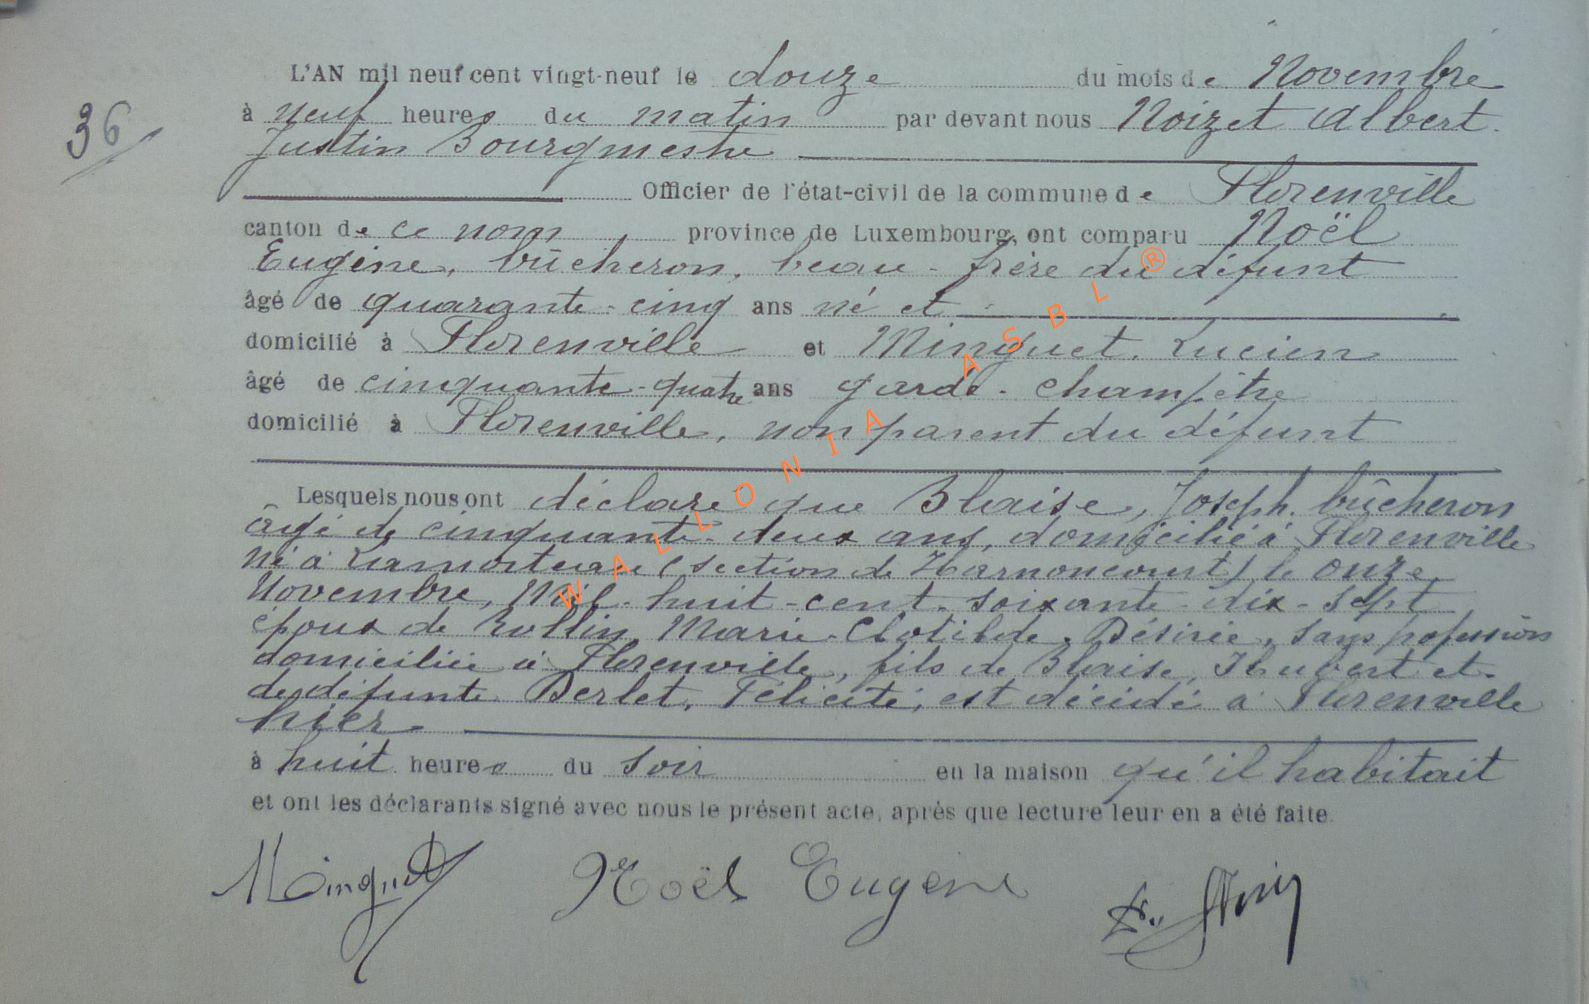 L'AN mil neuf cent vingt-neuf le douze du mois de Novembre
36
à neuf heures du matin par devant nous Noizet Albert
Justin Bourgmestre
Officier de l'état-civil de la commune de Florenville
canton de ce nom, province de Luxembourg, ont comparu Noël
Eugène, bûcheron, beau-frère du défunt
âgé de quarante-cinq ans né et
domicilié à Florenville et Minguet, Lucien
âgé de cinquante-quatre ans garde-champêtre
domicilié à Florenville, non parent du défunt
Lesquels nous ont déclaré que Blaise, Joseph, bûcheron
âgé de cinquante-deux ans, domicilié à Florenville
né à Lamorteau (section de Harnoncourt) le onze
Novembre, Mil-huit-cent-soixante-dix-sept
époux de Rollin, Marie-Clotilde-Désirée, sans profession
domiciliée à Florenville, fils de Blaise, Hubert et
de défunte Berlet, Félicité, est décédé à Florenville
hier
à huit heures du soir en la maison qu'il habitait
et ont les déclarants signé avec nous le présent acte, après que lecture leur en a été faite.
Minguet Noël Eugène
WALLONIA ASBL ®